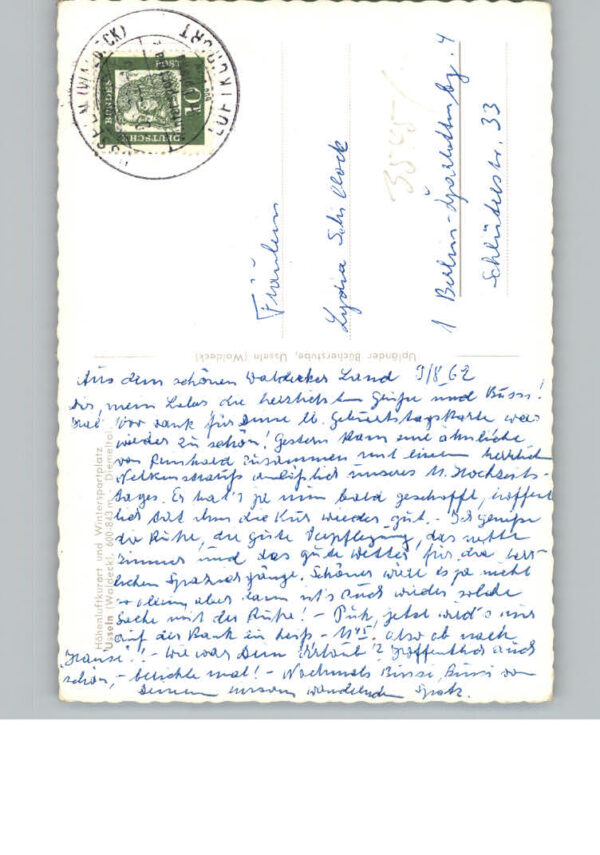 USSELN (WALDECK)
LUFTKURORT
DEUTSCHE
BUNDESPOST
10
Fräulein
Lydia Schlock
1 Berlin-Charlottenbg. 4
Schlüterstr. 33
Upländer Bücherstube, Usseln (Waldeck)
Höhenluftkurort und Wintersportplatz
Usseln (Waldeck), 600-843 m. Diemeltal
Aus dem schönen Waldecker Land 9/8.62
Dir, mein Liebes die herzlichsten Grüße und Bussi!
Dank für Deine lb. Geburtstagskarte war
wieder zu schön! Gestern kam eine ähnliche
von Reinhold zusammen mit einem herrlichen
Nelkenstrauß anläßlich unseres 11. Hochzeits-
tages. Er hat's ja nun bald geschafft, hoffent-
lich tat ihm die Kur wieder gut. - Ich genieße
die Ruhe, die gute Verpflegung, das nette
Zimmer und das gute Wetter für die herr-
lichen Spaziergänge. Schöner wäre es ja nicht
so allein, aber dann ist's auch wieder solche
Sache mit der Ruhe! - Puh, jetzt wird's mir
auf der Bank zu heiß - also ab nach
"Hause"! - Wie war Dein Urlaub? Hoffentlich auch
schön, - berichte mal! - Nochmals Bussi, Bussi von
Deinem einsam wandernden Spatz.